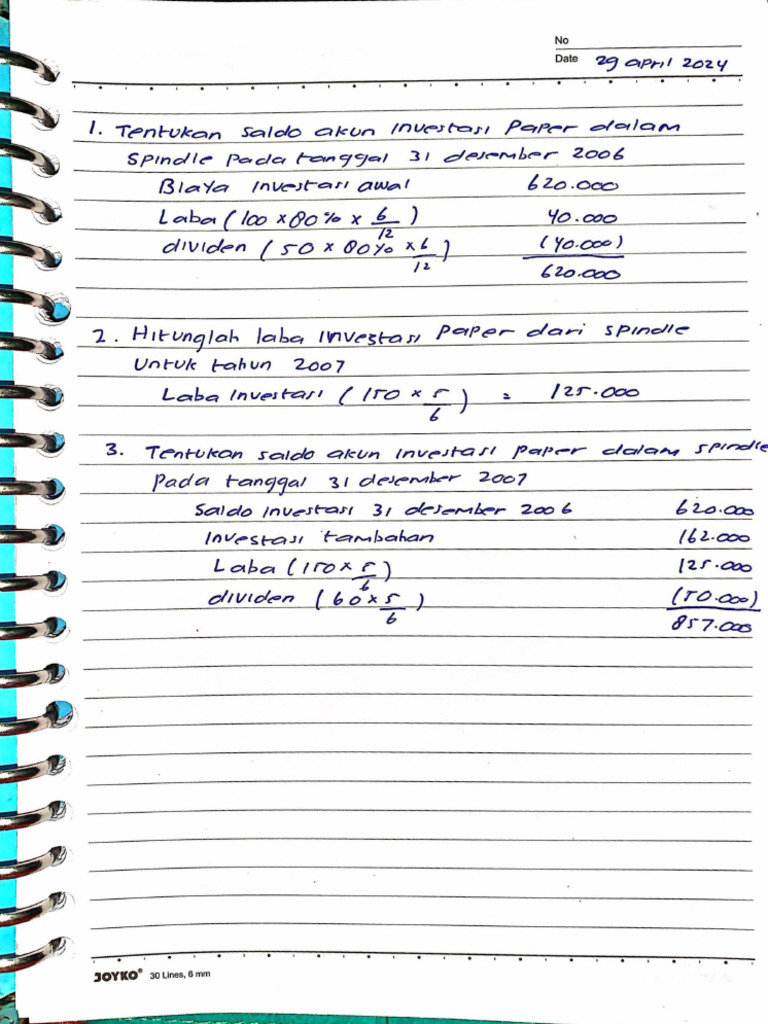 No
Date 29 april 2024
1. Tentukan saldo akun investasi Paper dalam
Spindle pada tanggal 31 desember 2006
Biaya investasi awal 620.000
Laba (100 x 80% x 6/12) 40.000
dividen (50 x 80% x 6/12) (40.000)
620.000
2. Hitunglah laba investasi Paper dari spindle
Untuk tahun 2007
Laba investasi (150 x 5/6) = 125.000
3. Tentukan saldo akun investasi paper dalam spindle
Pada tanggal 31 desember 2007
Saldo investasi 31 desember 2006 620.000
Investasi tambahan 162.000
Laba (150 x 5/6) 125.000
dividen (60 x 5/6) (50.000)
857.000
JOYKO® 30 Lines, 6 mm